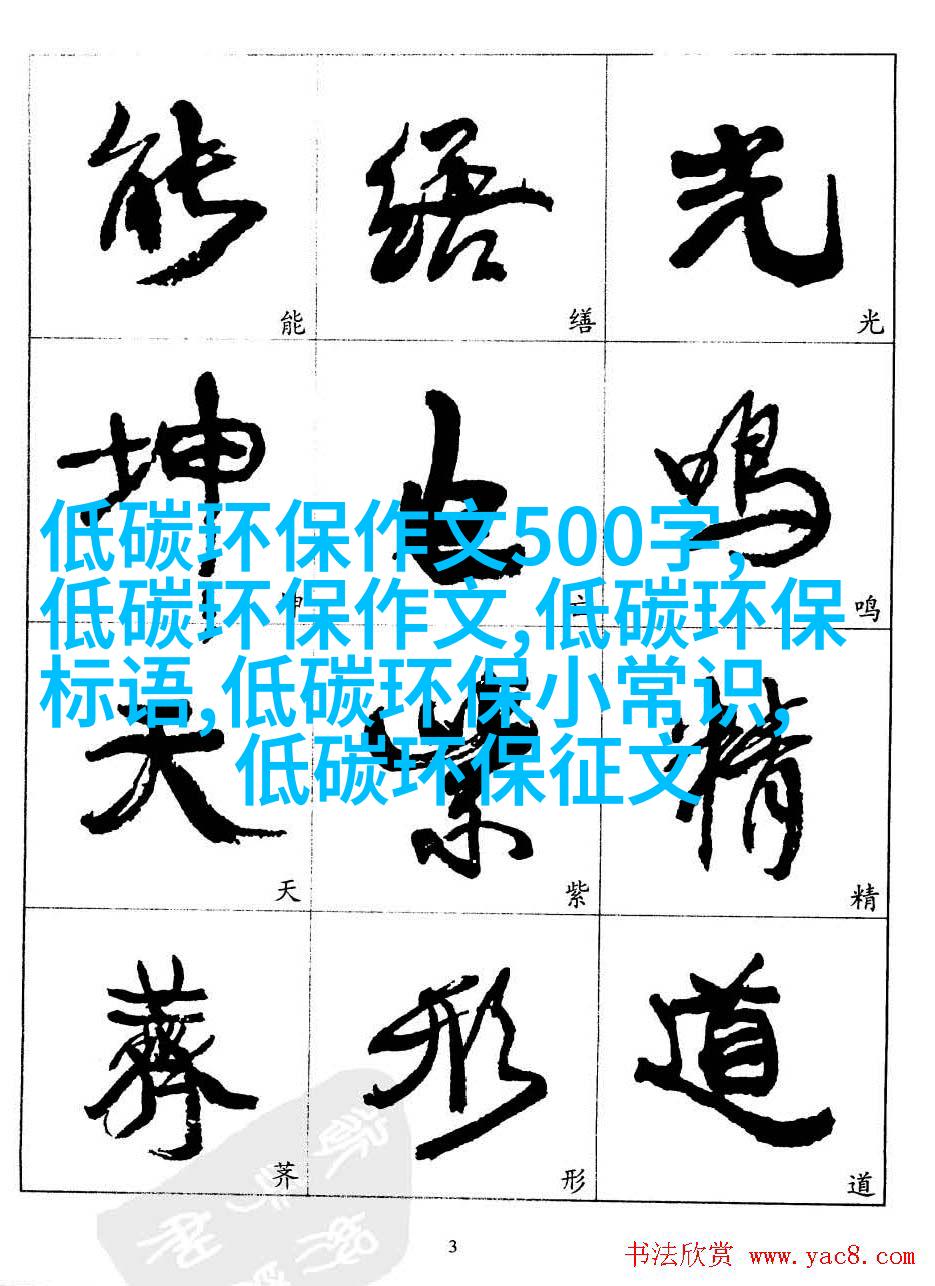 能 繕 光
能 缮 光
坤 鸣
低碳环保作文500字,
低碳环保作文,低碳环保
鸣
标语,低碳环保小常识,
低碳环保征文
天 紫 精
天 紫 精
薺 形 道
荠 形 道
3
书法欣赏 www.yac8.com